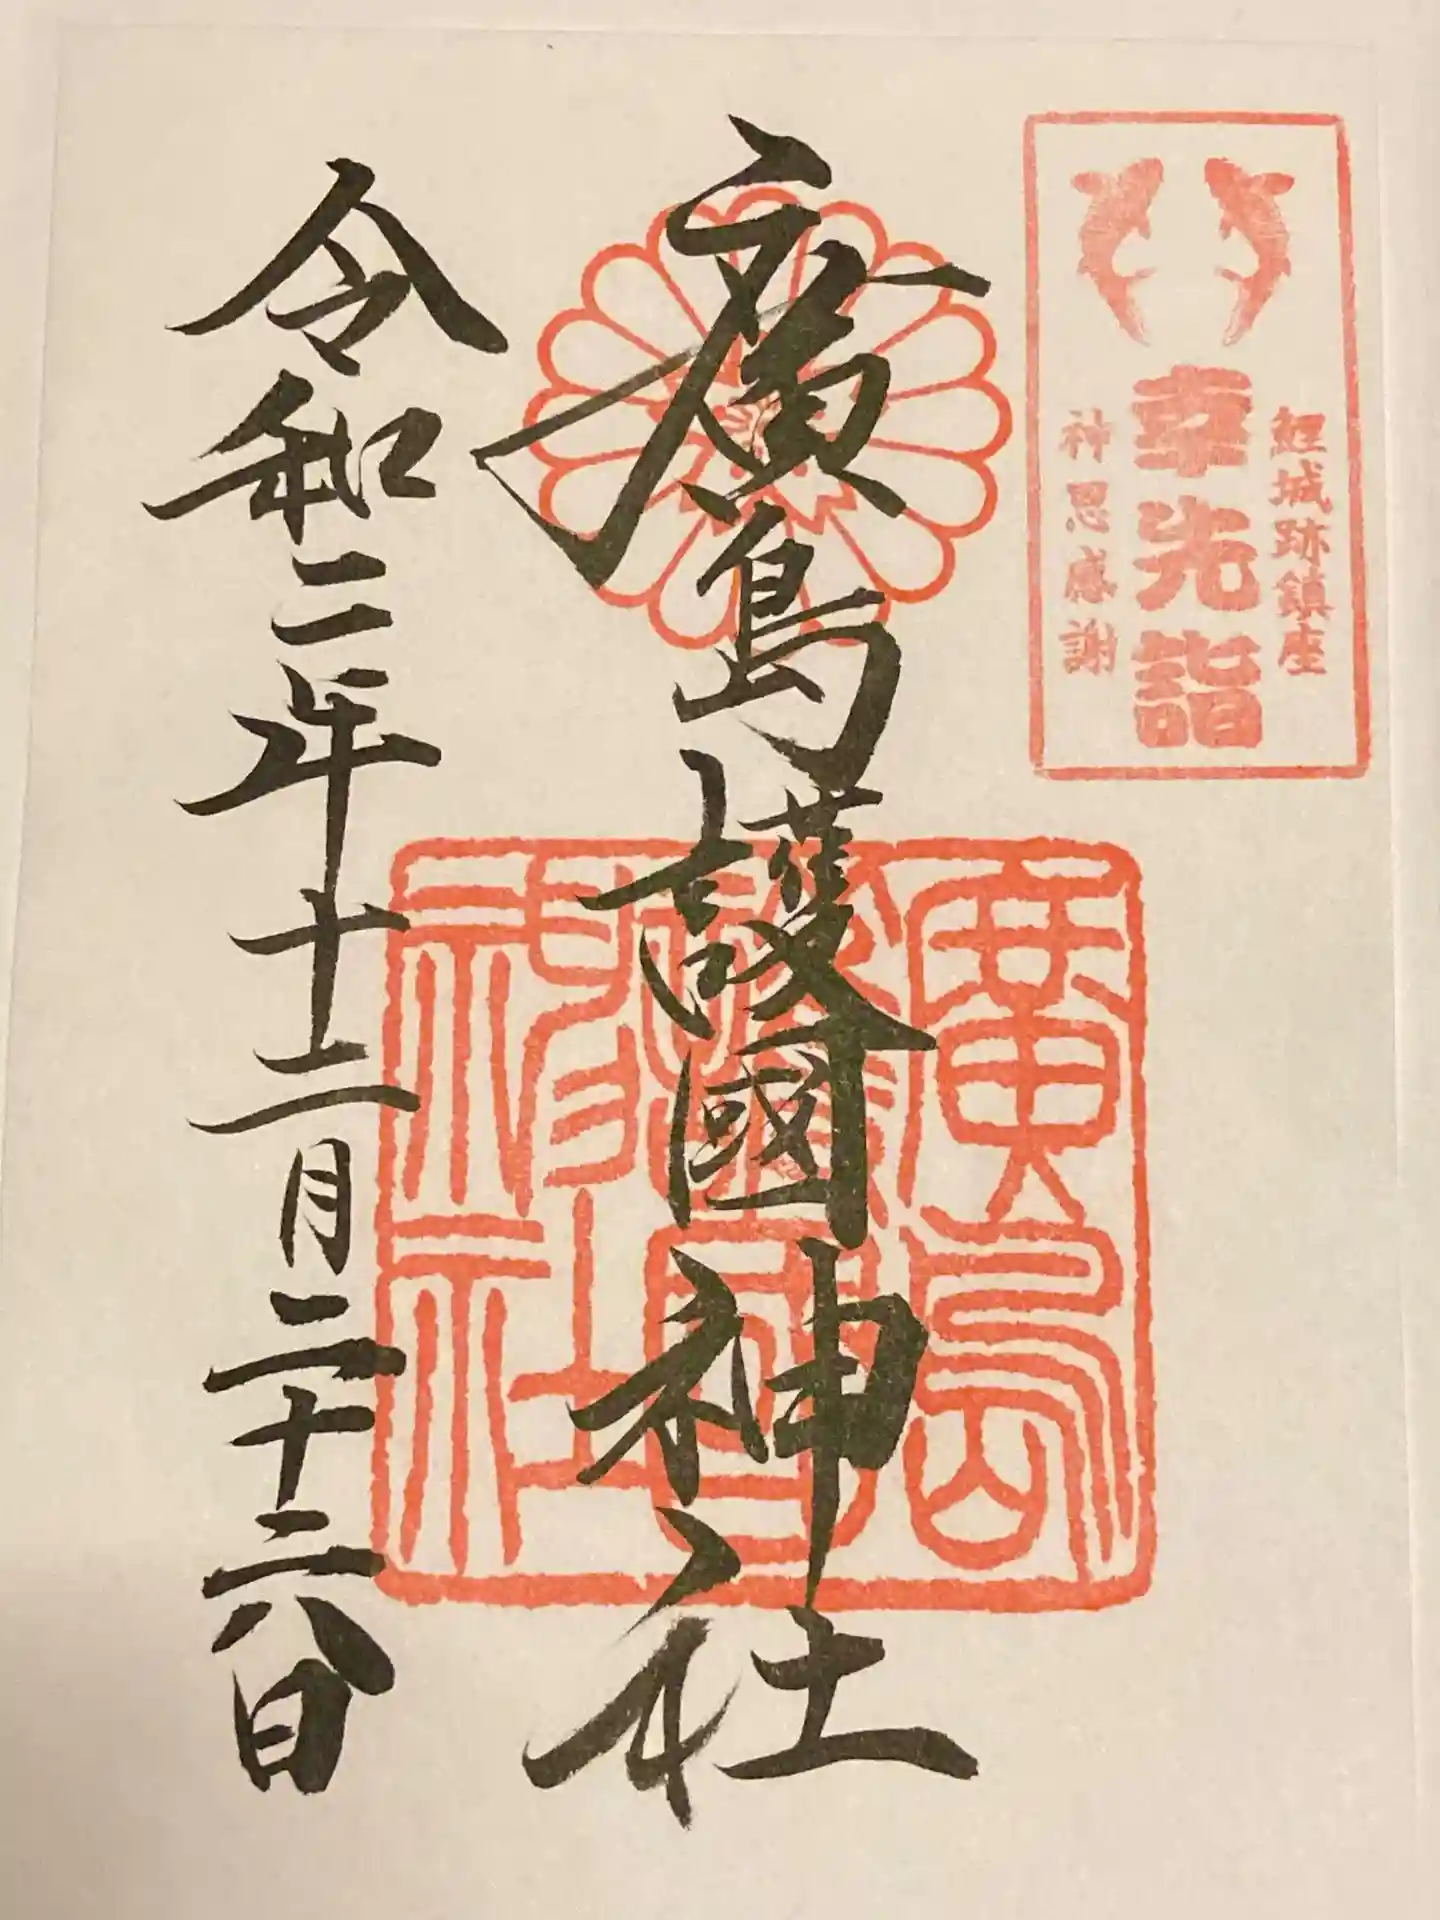 鯉城跡鎮座
幸先詣
神恩感謝
廣島護國神社
廣島
護國
神社
令和二年十二月二十六日